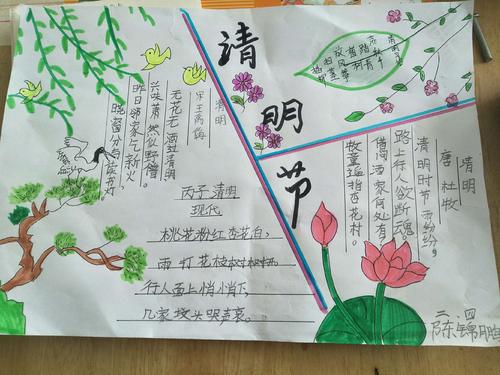 清明节
清明
宋 王禹偁
无花无酒过清明,
兴味萧然似野僧。
昨日邻家乞新火
晓窗分与读书灯
丙子清明
现代
桃花粉红杏花白,
雨打花枝
行人面上悄悄下,
几家坟头哭声哀。
清明
唐 杜牧
清明时节雨纷纷,
路上行人欲断魂。
借问酒家何处有?
牧童遥指杏花村。
二.四
陈锦鹏